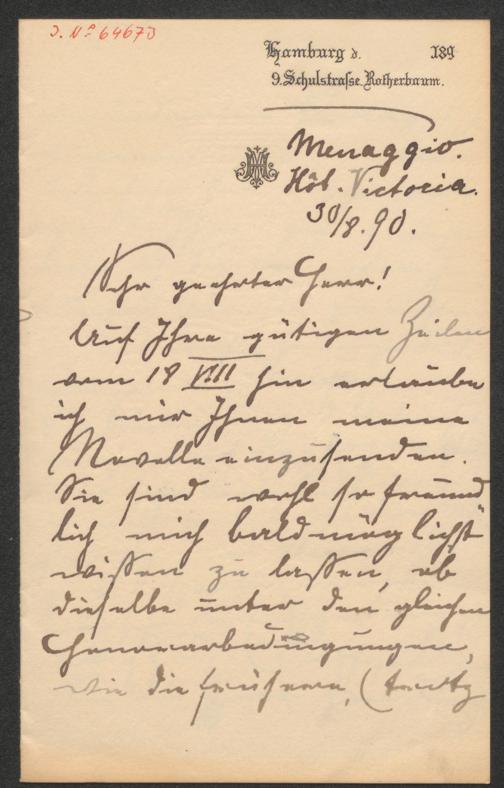 J. Nº 64673
Hamburg d. 189
9. Schulstrasse. Rotherbaum.
Menaggio.
Hôt. Victoria.
30/8.90.
Sehr geehrter Herr!
Auf Ihre gütigen Zeilen
vom 18 VIII hin erlaube
ich mir Ihnen meine
Novelle einzusenden.
Sie sind wohl so freund
lich mich baldmöglichst
wissen zu lassen, ob
dieselbe unter den gleichen
Honorarbedingungen,
wie die frühere, (trotz